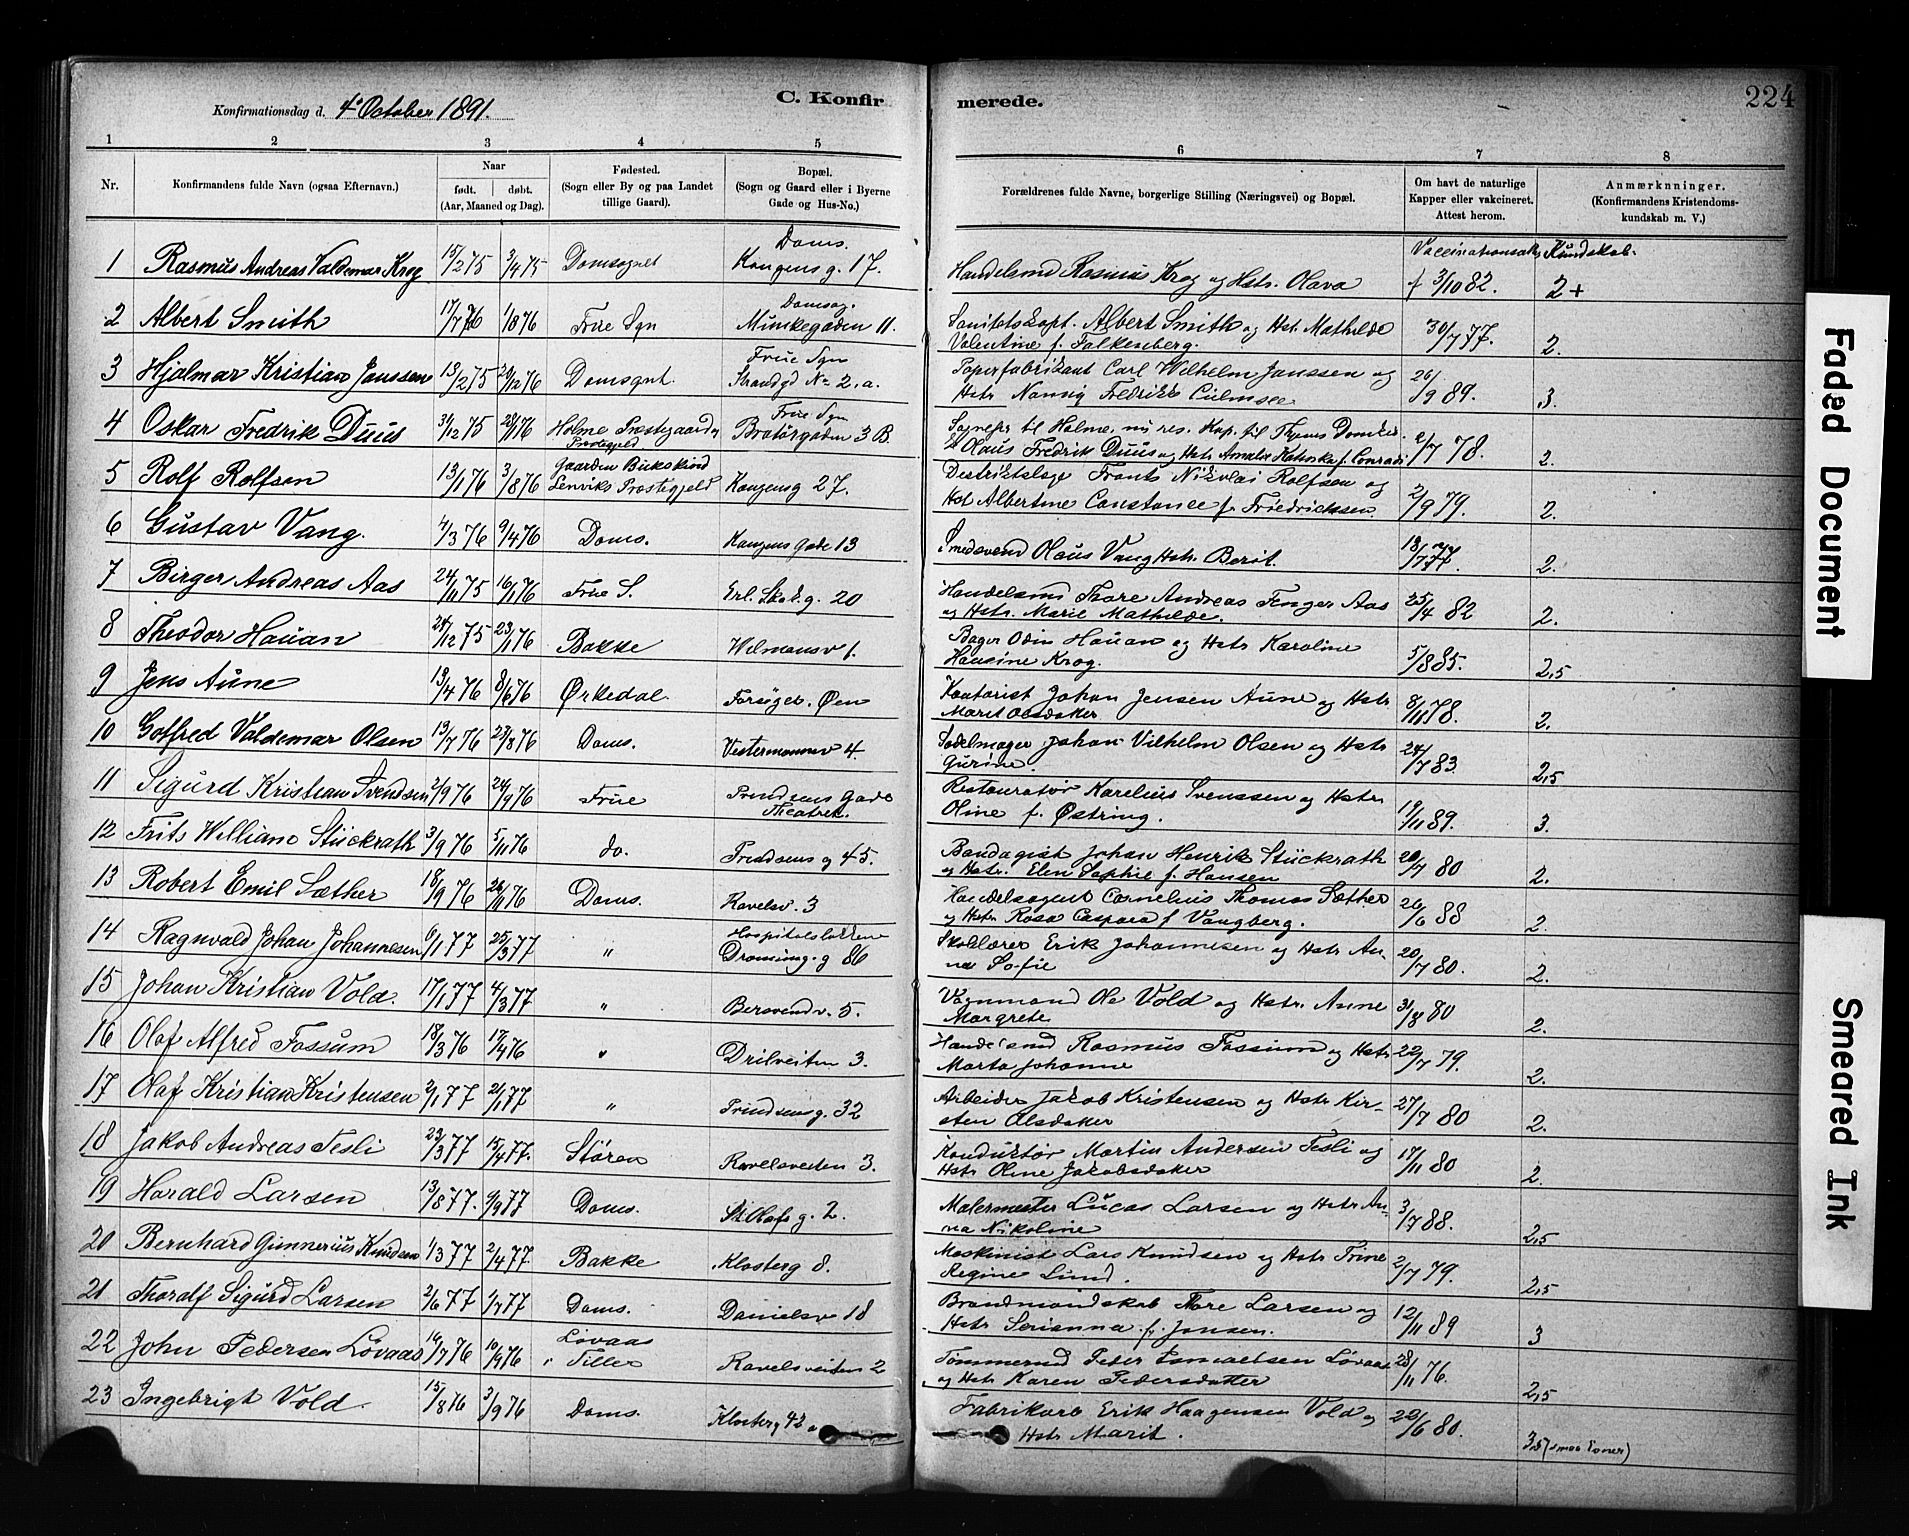 Konfirmationsdag d. 4de October 1891.
C. Konfirmerede.
224
1 2 3 4 5 6 7 8
Nr.
Konfirmandens fulde Navn (ogsaa Efternavn.)
Naar
født. døbt.
(Aar, Maaned og Dag).
Fødested.
(Sogn eller By og paa Landet
tillige Gaard).
Bopæl.
(Sogn og Gaard eller i Byerne
Gade og Hus-No.)
Forældrenes fulde Navne, borgerlige Stilling (Næringsvei) og Bopæl.
Om havt de naturlige
Kopper eller vakcineret.
Attest herom.
Anmærknninger.
(Konfirmandens Kristendoms-
kundskab m. V.)
Doms. Vaccinationsat. Kundskab.
1 Rasmus Andreas Valdemar Krog 15/2 75 3/4 75 Domsognet Kongens g. 17. Handelsmd Rasmus Krog og Hstr. Olava 3/10 82. 2+
Domsog.
2 Albert Smith 17/7 76 1/8 76 Frue Sgn Munkegaden 11. Sanitetskapt. Albert Smith og Hst. Mathilde
Valentine f. Falkenberg. 30/7 77. 2.
Frue Sgn
3 Hjalmar Kristian Janssen 13/2 75 76 Domsgnt. Strandgd No 2. a. Papirfabrikant Carl Wilhelm Janssen og
Hstr Nannig Fredrikke Culmsee 26/9 89. 3.
Frue Sgn
4 Oskar Fredrik Duus 31/12 75 76 Holme Præstegaard Bratørgaden 3 B. Sogneprs til Holme, nu res. Kap. til Thjems Domkir.
Præstegjeld Olaus Fredrik Duus og Hstr Amalie f. Conradi 2/7 78. 2.
5 Rolf Rolfsen 13/1 76 3/8 76 Gaarden Bukskind
Lenviks Præstegjeld Kongensg 27. Distriktslæge Frants Nikolai Rolfsen og
Hst Albertine Constance f. Friedrichsen 2/9 79. 2.
6 Gustav Vang. 4/3 76 9/4 76 Doms. Kongens Gade 13 Smedsvend Olaus Vang Hstr. Berit. 77. 2.
7 Birger Andreas Aas 24/11 75 16/1 76 Frue S. Erl. Skak.g. 20 Handelsmd Thore Andreas Fenger Aas
og Hstr. Marie Mathilde. 25/4 82 2.
8 Theodor Hauan 24/12 75 23/1 76 Bakke Wilmansv 1. Bager Odin Hauan og Hstr Karoline
Hansine Krog. 5/8 85. 2,5
9 Jens Aune 13/4 76 8/6 76 Ørkedal. Forsøget. Øen Kontorist Johan Jensen Aune og Hstr
Marit Olsdatter 8/11 78. 2.
10 Gotfred Valdemar Olsen 13/7 76 23/8 76 Doms. Vestermannsv 4. Sadelmager Johan Vilhelm Olsen og Hstr
Gurine. 24/7 83. 2,5
11 Sigurd Kristian Svendsen 2/9 76 24/9 76 Frue Prindsens Gade
Theatret. Restauratør Karelius Svenssen og Hstr
Oline f. Østring. 19/11 89. 3.
12 Frits William Stückrath 3/9 76 5/11 76 do. Prindsens g 45. Bandagist Johan Henrik Stückrath
og Hstr. Elen Sophie f. Hansen 20/7 80 2.
13 Robert Emil Sæther 18/9 76 26/11 76 Doms. Ravelsv. 3 Handelsagent Cornelius Thomas Sæther
og Hstr Rosa Caspara f Vangberg. 26/6 88 2.
14 Ragnvald Johan Johannesen 6/1 77 25/3 77 " Hospitalsløkken
Dronning. g 86 Skolelærer Erik Johannesen og Hstr An-
na Sofie 20/7 80. 2.
15 Johan Kristian Vold. 17/1 77 4/3 77 " Bersvendv. 5. Vognmand Ole Vold og Hstr. Anne
Margrete 31/8 80 2.
16 Olaf Alfred Fossum 18/3 76 17/4 76 " Drilveiten 3. Handelsmd Rasmus Fossum og Hstr
Marta Johanne 22/7 79. 2.
17 Olaf Kristian Kristensen 2/1 77 21/1 77 " Prindsens g. 32 Arbeider Jakob Kristensen og Hstr Kir-
sten Olsdatter 27/7 80 2.
18 Jakob Andreas Tesli 23/3 77 15/4 77. Støren Ravelsveiten 3. Konduktør Martin Andersen Tesli og
Hstr Oline Jakobsdatter 17/11 80 2.
19 Harald Larsen 13/8 77. 9/9 77 Doms. St. Olafs g. 2. Malermester Lucas Larsen og Hstr An-
na Nikoline 3/7 88. 2,5
20 Bernhard Gunnerius Knudsen 1/3 77 2/4 77. Bakke Klosterg 8. Maskinist Lars Knudsen og Hstr Trine
Regine Lund. 2/7 79. 2,5
21 Thoralf Sigurd Larsen 2/6 77 1/7 77 Doms. Danielsv 18 Brandmandskab Thore Larsen og
Hstr Serianna f. Jonsen. 12/11 89 3
22 John Pedersen Løvaas 14/7 76 10/9 76 Løvaas
i Tiller Ravelsveiten 2 Tømmermd Peder Ismaelsen Løvaas
og Hstr Karen Pedersdatter 28/11 76. 2,5
23 Ingebrigt Vold. 15/8 76 3/9 76 Doms. Klosterg 42 Fabrikarb Erik Haagensen Vold og
Hstr Marit. 22/6 80. 3,5 (smaa Evner)
Faded Document
Smeared Ink